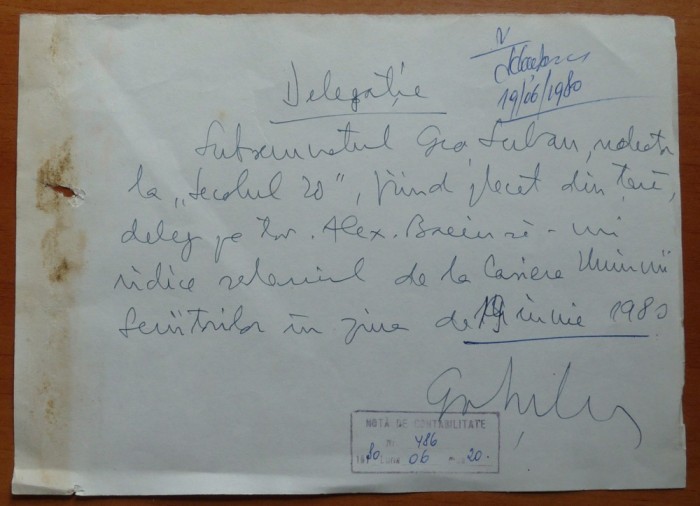 V
19/06/1980
Delegație
Subsemnatul Geo Șerban, redactor
la „Secolul 20", fiind plecat din țară,
deleg pe tov. Alex. să-mi
ridice salariul de la Casieria Uniunii
Scriitorilor în ziua de 19 iunie 1980
NOTĂ DE CONTABILITATE
Nr. 486
1980 Luna 06 20.